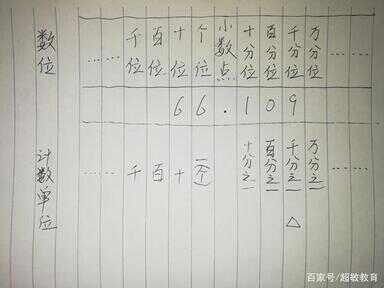 数位 …… 千位 百位 十位 个位 小数点 十分位 百分位 千分位 万分位 ……
6 6 . 1 0 9
计数单位 …… 千 百 十 一(个) 十分之一 百分之一 千分之一 万分之一 ……
△
百家号/超敏教育